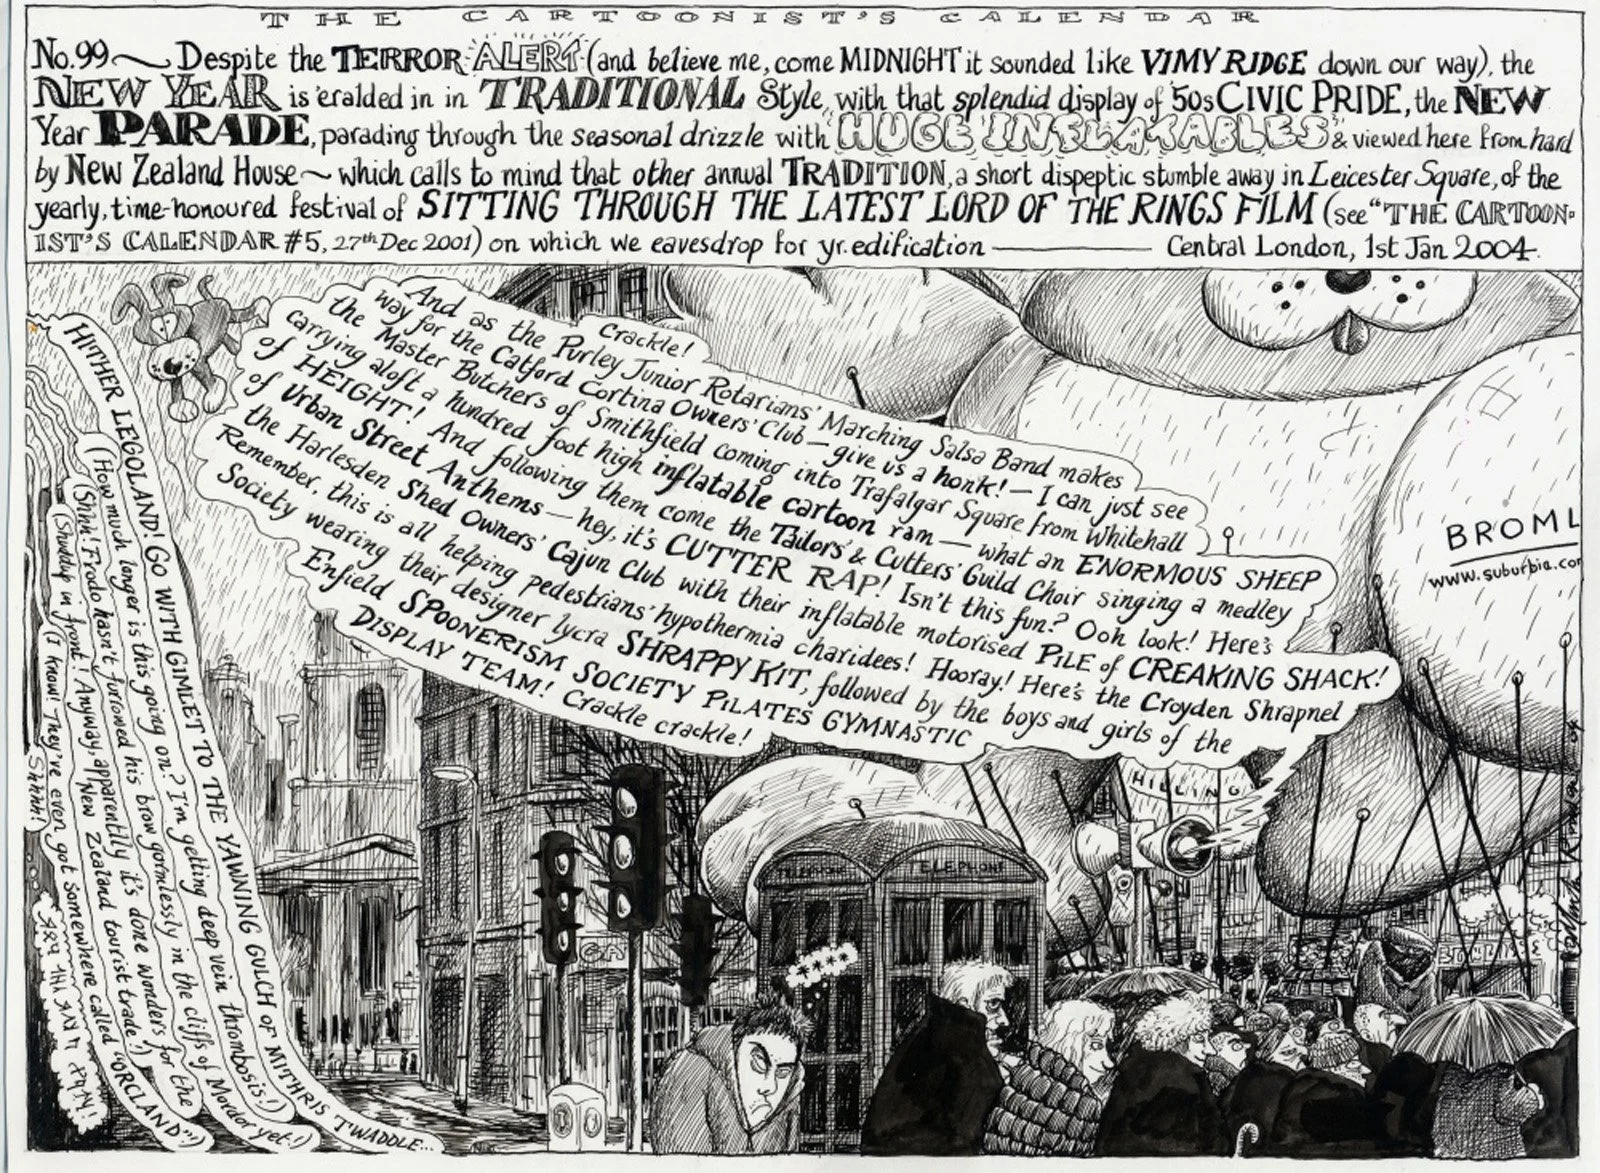 THE CARTOONIST'S CALENDAR
No.99 ~ Despite the TERROR ALERT (and believe me, come MIDNIGHT it sounded like VIMY RIDGE down our way), the
NEW YEAR is 'eralded in in TRADITIONAL Style, with that splendid display of '50s CIVIC PRIDE, the NEW
Year PARADE, parading through the seasonal drizzle with HUGE INFLATABLES & viewed here from hard
by New Zealand House ~ which calls to mind that other annual TRADITION, a short dispeptic stumble away in Leicester Square, of the
yearly, time-honoured festival of SITTING THROUGH THE LATEST LORD OF THE RINGS FILM (see "THE CARTOON-
IST'S CALENDAR #5, 27th Dec 2001) on which we eavesdrop for yr. edification — Central London, 1st Jan 2004.
Crackle!
And as the Purley Junior Rotarians' Marching Salsa Band makes
way for the Catford Cortina Owners' Club — give us a honk! — I can just see
the Master Butchers of Smithfield coming into Trafalgar Square from Whitehall
carrying aloft a hundred foot high inflatable cartoon ram — what an ENORMOUS SHEEP
of HEIGHT! And following them come the Tailors' & Cutters' Guild Choir singing a medley
of Urban Street Anthems — hey, it's CUTTER RAP! Isn't this fun? Ooh look! Here's
the Harlesden Shed Owners' Cajun Club with their inflatable motorised PILE of CREAKING SHACK!
Remember, this is all helping pedestrians' hypothermia charidees! Hooray! Here's the Croyden Shrapnel
Society wearing their designer lycra SHRAPPY KIT, followed by the boys and girls of the
Enfield SPOONERISM SOCIETY PILATES GYMNASTIC
DISPLAY TEAM! Crackle crackle!
HITHER LEGOLAND! GO WITH GIMLET TO THE YAWNING GULCH OF MITHRIS TWADDLE...
(How much longer is this going on? I'm getting deep vein thrombosis!)
(Shhh! Frodo hasn't furrowed his brow gormlessly in the cliffs of Mordor yet!)
(Shuddup in front! Anyway, apparently it's done wonders for the
New Zealand tourist trade!)
(I know! They've even got somewhere called "ORCLAND"!)
Shhhh!
BROML
www.suburbia.com
HILLING
TELEPHONE
TELEPHONE
****
GA